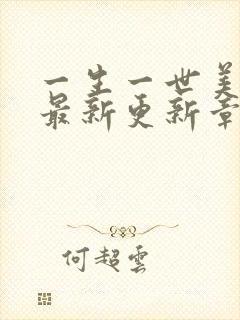 一生一世美
最新更新章
何超雲